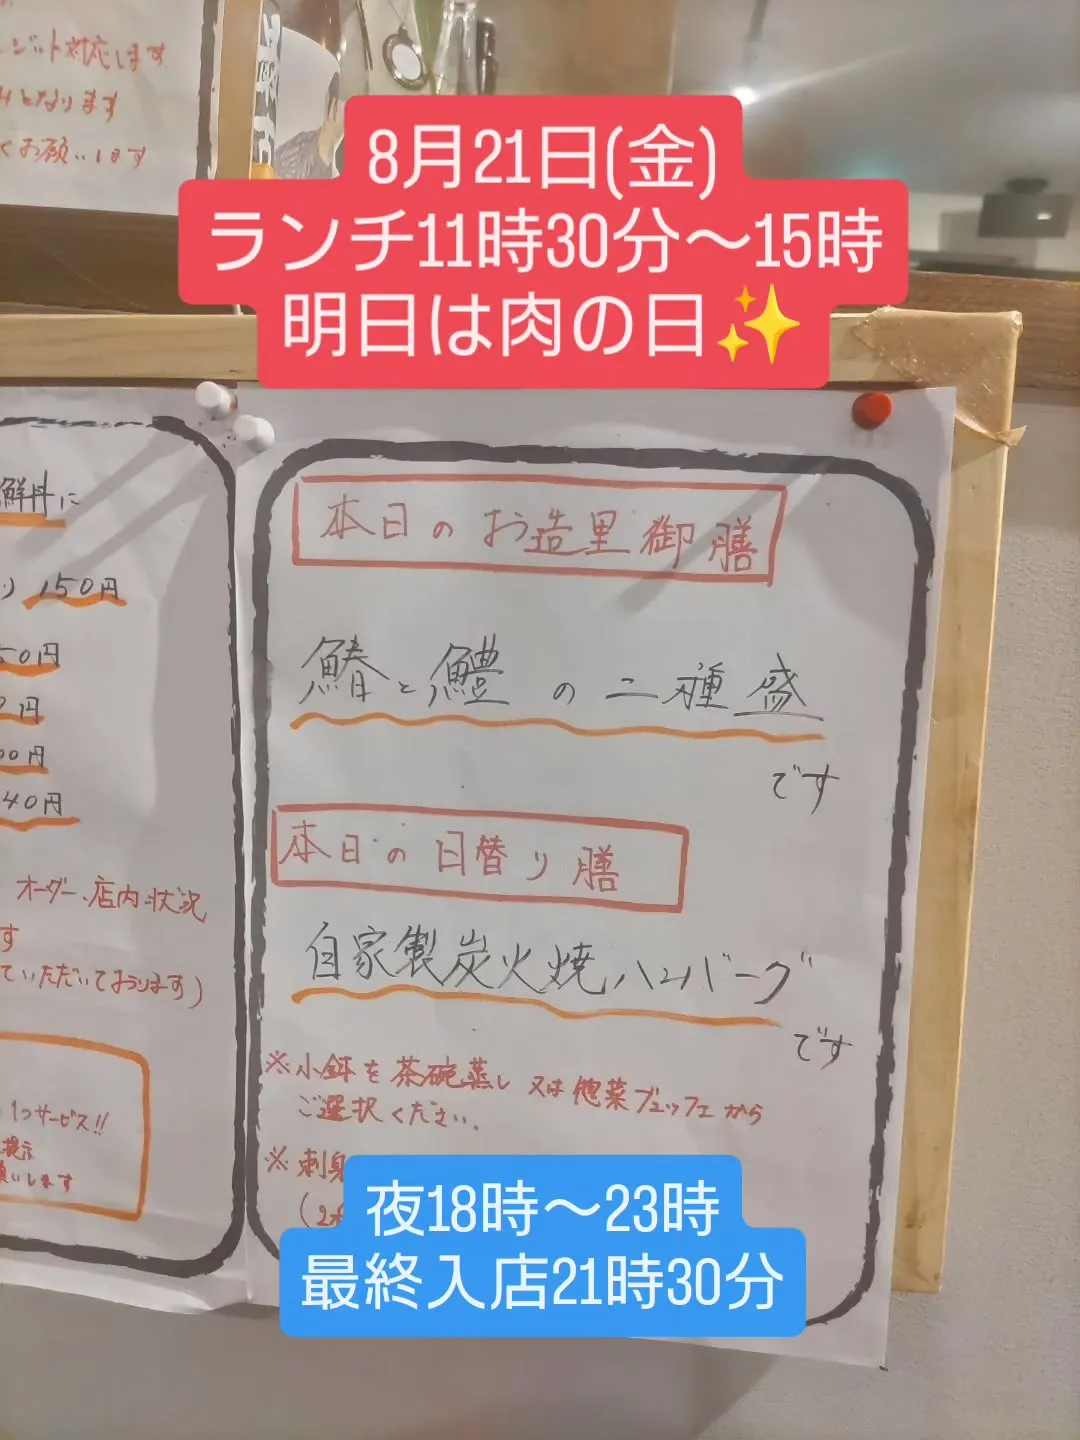 ジット対応します
みとなります
くお願いします
8月21日(金)
ランチ11時30分〜15時
明日は肉の日✨
鮮丼に
150円
50円
円
00円
40円
オーダー、店内状況
す
ていただいております)
1つサービス!!
提示
願いします
本日のお造里御膳
鰆と鱧の二種盛
です
本日の日替り膳
自家製炭火焼ハンバーグ
です
※小鉢を茶碗蒸し又は惣菜ブュッフェから
ご選択ください。
※刺身
夜18時〜23時
最終入店21時30分